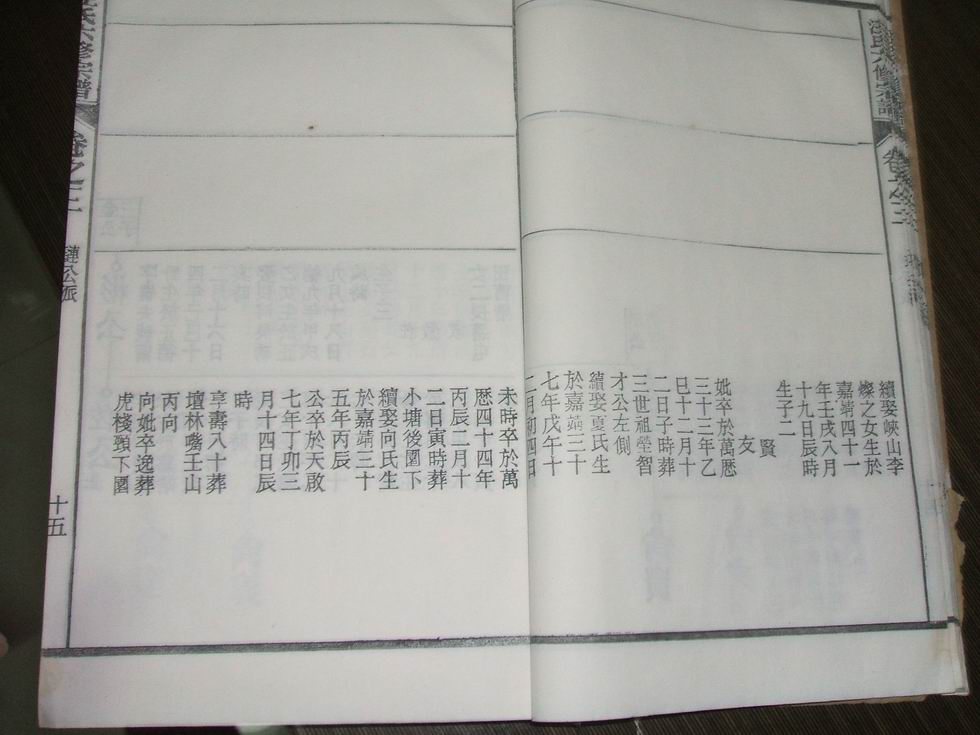 續娶峽山李
燦之女生於
嘉靖四十一
年壬戌八月
十九日辰時
生子二
賢
友
妣卒於萬厯
三十三年乙
巳十二月十
二日子時葬
三世祖瑩智
才公左側
續娶夏氏生
於嘉靖三十
七年戊午十
二月初四日
未時卒於萬
厯四十四年
丙辰二月十
二日寅時葬
小塘後園下
續娶向氏生
於嘉靖三十
五年丙辰
公卒於天啟
七年丁卯三
月十四日辰
時
享壽八十葬
壇林嘴壬山
丙向
向妣卒逸葬
虎棧頸下園
氏六修宗譜
卷之二
璉公派
十五